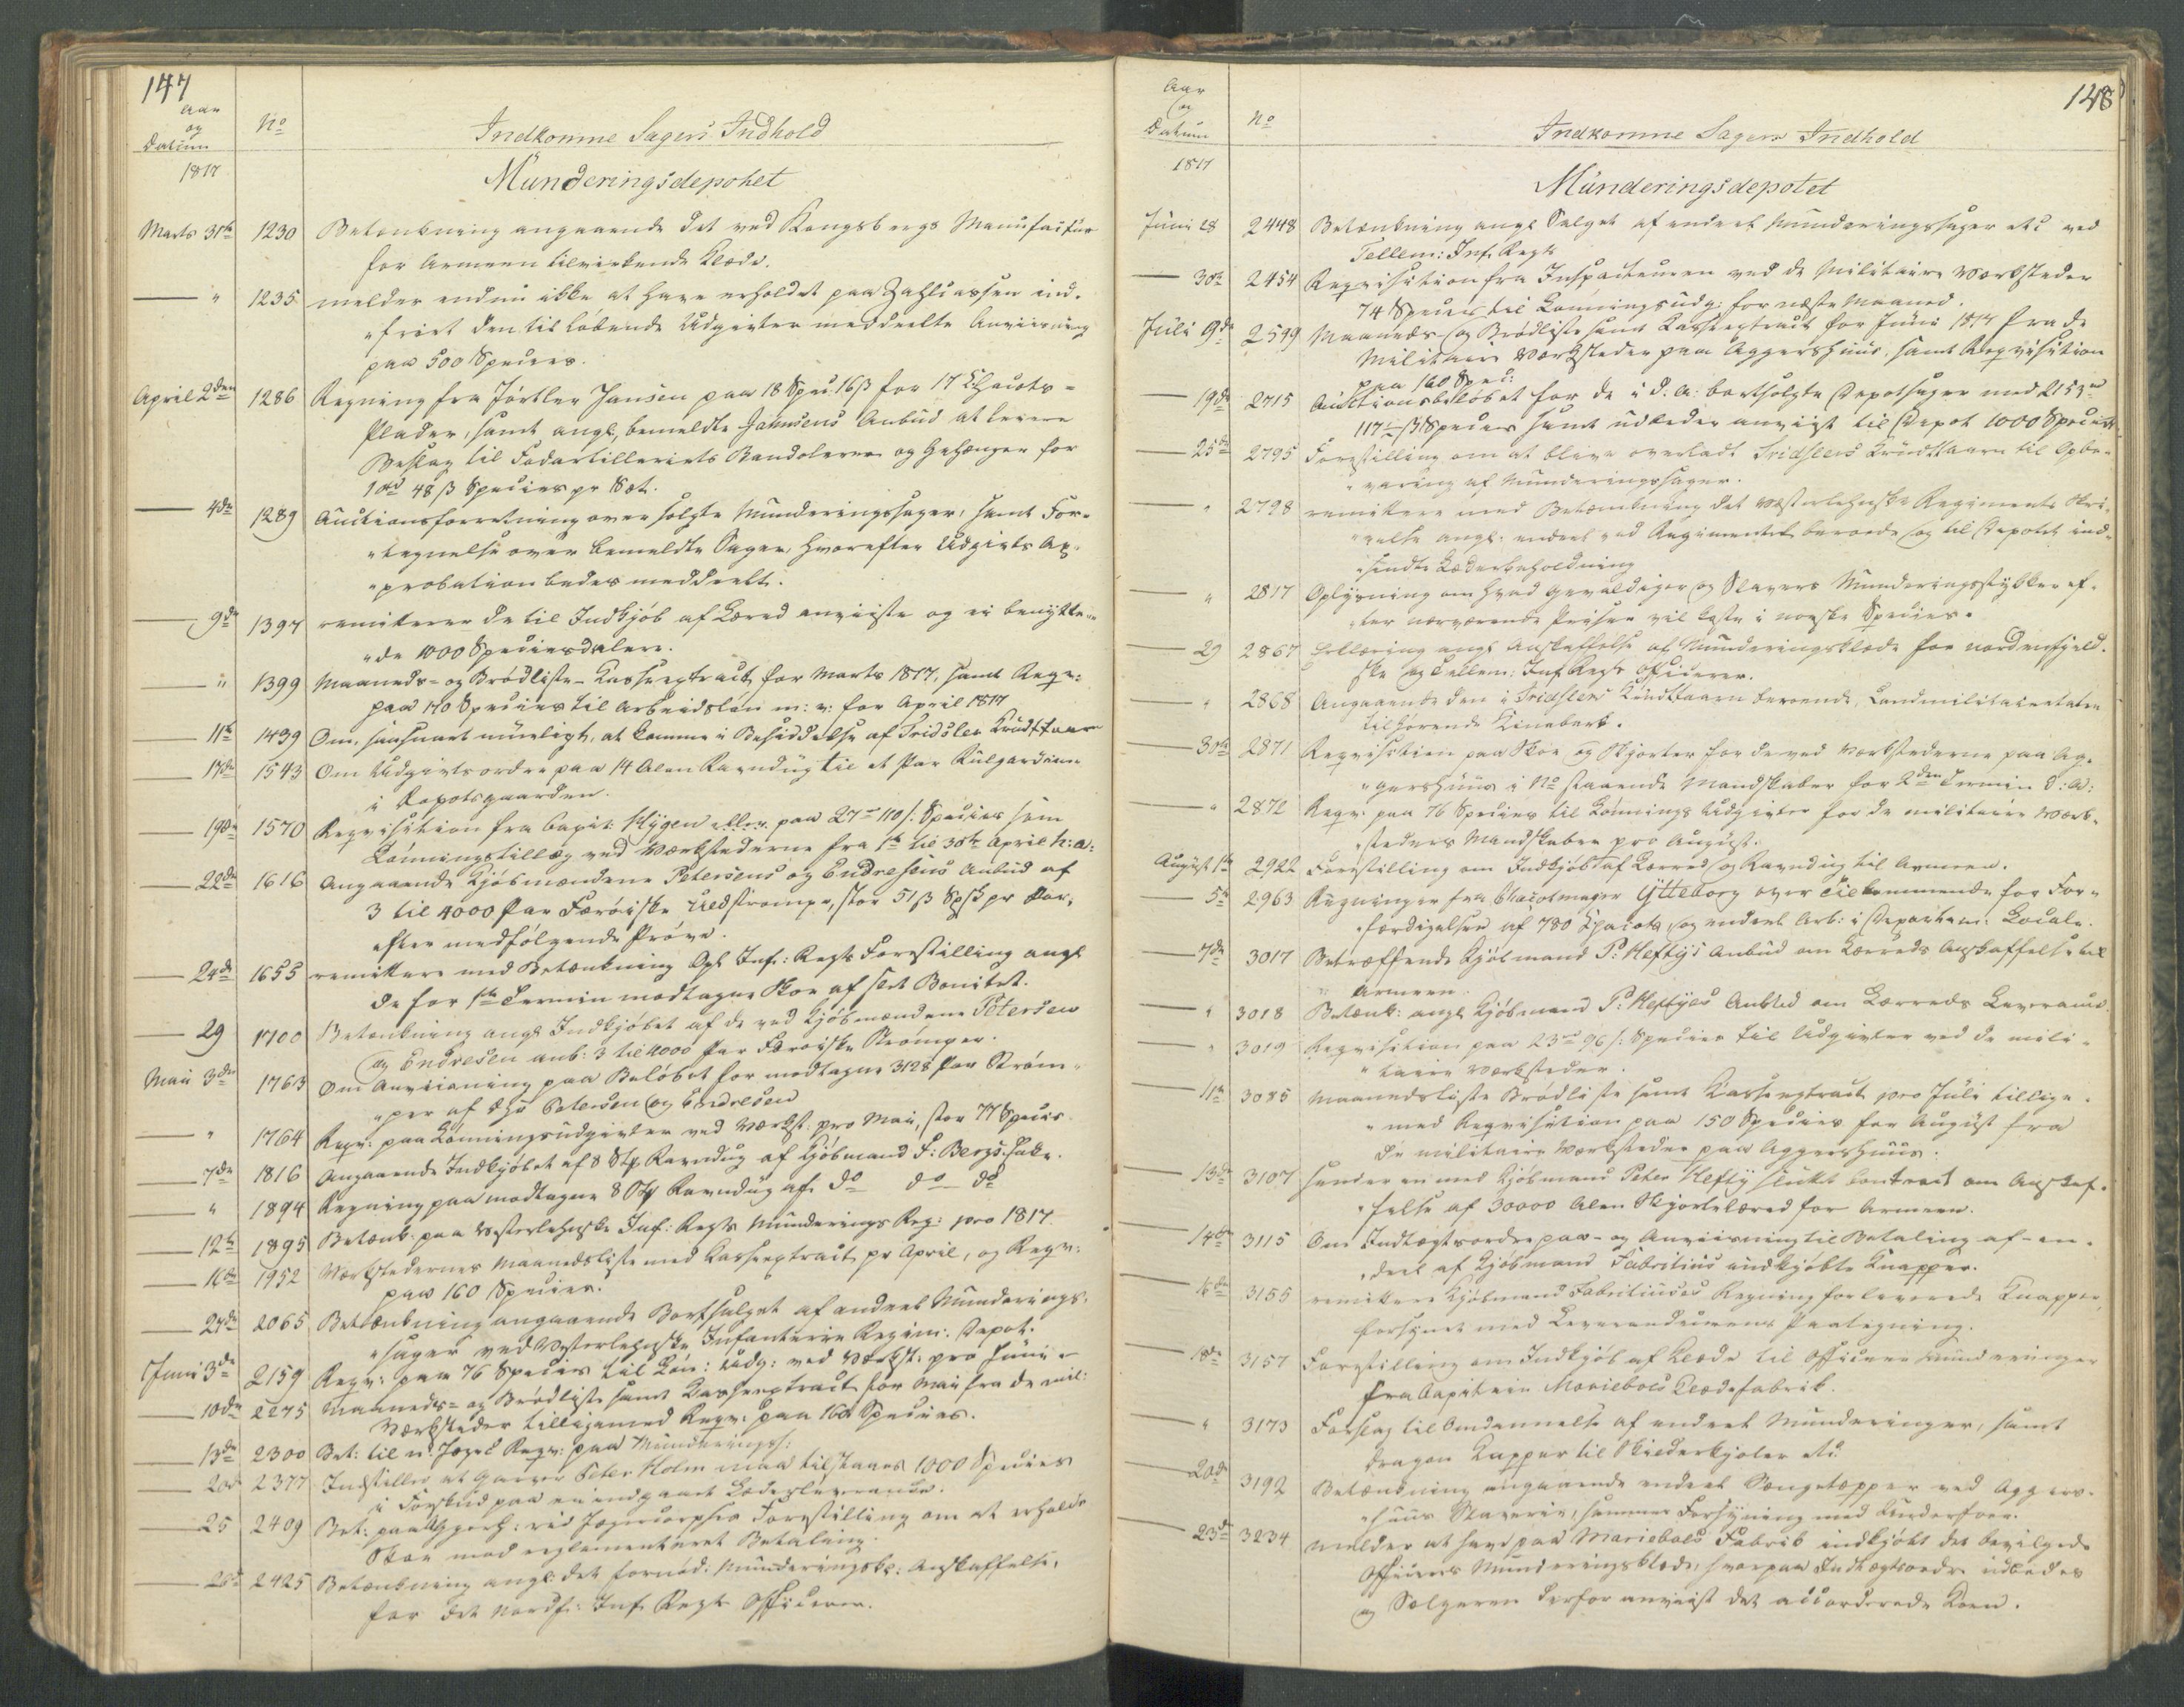 147
Aar
og
Datum
No
Indkomne Sagers Indhold
1817
Munderingsdepotet
Marts 31te 1230 Betænkning angaaende det ved Kongsbergs Manufactur
for Armeen tilvirkende Klæde.
— " 1235 melder endnu ikke at have erholdet paa Zahlcassen ind-
"friet den til løbende Udgivter meddeelte Anviisning
paa 500 Species.
April 2den 1286 Regning fra Gørtler Jansen paa 18 Spec. 16 β for 17 Chacots-
Plader, samt angl. bemeldte Jahnsens Anbud at levere
Beslag til Fodartilleriets Bandolerer og Gehænger for
1 ort 48 β Species pr Sæt.
— 4de 1289 Auctionsforretning over solgte Munderingssager, samt For-
"tegnelse over bemeldte Sager, hvorefter Udgivts Ap-
"probation bedes meddeelt.
— 9de 1397 remiterer de til Indkjøb af Lærred anviiste og ei benytte-
"de 1000 Speciesdalere.
— " 1399 Maaneds- og Brødliste- Kasseextract for Marts 1817, samt Reqv:
paa 170 Species til Arbeidsløn m: v: for April 1817
— 11te 1439 Om, saasnart mueligt, at komme i Besiddelse af Fridsler Krudttaarn
— 17de 1543 Om Udgivtsordre paa 14 Alen Ravndug til et Par Rulgardiner
i Depotgaarden.
— 19de 1570 Reqvisition fra Capit: Hygen paa 27 110 s. Species som
Lønningstillæg ved Værkstederne fra 1te til 30te April h: a:
— 22de 1616 Angaaende Kjøbmændene Petersens og Endresens Anbud af
3 til 4000 Par Færøiske Uldstrømper, stor 51 β Sps pr Par,
efter medfølgende Prøve.
— 24de 1655 remitterer med Betænkning Opl. Inf: Regts Forestilling angl.
de for 1ste Termin modtagne Skoe af slet Bonitet.
— 29 1700 Betænkning angl. Indkjøbet af de ved Kjøbmændene Petersen
og Endresen anb: 3 til 4000 Par Færøiske Strømper.
Maii 3de 1763 Om Anviisning paa Beløbet for modtagne 3128 Par Strøm-
"per af Petersen og Endresen
— " 1764 Reqv: paa Lønningsudgivter ved Værkst: pro Maii, stor 77 Species
— 7de 1816 Angaaende Indkjøbet af 8 Stk. Ravndug af Kjøbmand
— " 1894 Regning paa modtagne 8 Stk Ravndug af do do do
— 12te 1895 Betænk. paa Vesterlehnske Inf: Regts Munderings Reg: pro 1817.
— 16de 1952 Værkstedernes Maanedsliste med Kasseextract pr April, og Reqv:
paa 160 Species.
— 24de 2065 Betænkning angaaende Bortsalget af endeel Munderings-
"sager ved Vesterlehnske Infanterie Regim: Depot.
Juni 3de 2159 Reqv: paa 76 Species til Løn: Udg: ved Værkst: pro Juni
— 10de 2275 Maaneds- og Brødliste samt Kasseextract for Maii fra de mil:
Værksteder tilligemed Reqv. paa 160 Species.
— 13de 2300 Bet: til Reqv: paa Munderingss:
— 20d 2377 Indstiller at Garver Peter Holm maa tilstaaes 1000 Species
i Forskud paa en indgaaet Læderleverance.
— 25 2409 Bet: paa Forestilling om at erholde
Skoe mod reglementeret Betaling.
— 26d 2425 Betænkning angl. det fornød: Munderingskl: Anskaffelse,
for det Nordf: Inf. Regts Officerer.
148
Aar
og
Datum
No
Indkomne Sagers Indhold
1817
Munderingsdepotet
Juni 28 2448 Betænkning angl. Salget af endeel Munderingssager etc ved
Tellem: Inf. Regt
— 30te 2454 Reqvisition fra Inspecteuren ved de Militaire Værksteder
74 Species til Lønningsudg: for næste Maaned.
Juli 9de 2599 Maaneds- og Brødliste samt Kasseextract for Juni 1817 fra de
Militaire Værksteder paa Aggershuus, samt Reqvisition
paa 160 Spec:
— 19de 2715 Auctionsbeløbet for de i d. A: bortsolgte Depotsager med 2153
117½ β Species samt udbeder anviist til Depot 1000 Species
— 25de 2795 Forestilling om at blive overladt Fridslers Krudttaarn til Opbe-
"varing af Munderingssager.
— " 2798 remitterer med Betænkning det Vesterlehnske Regiments Skri-
"velse angl. endeel ved Regimentet beroede og til Depotet ind-
"sendte Læderbeholdning
— " 2817 Oplysning om hvad Gevaldiger og Slavers Munderingsstykker ef-
"ter nærværende Priser vil koste i norske Species.
— 29 2867 Erklæring angl. Anskaffelse af Munderingsklæde for nordenfjeld-
ske og Tellem: Inf. Regts Officerer.
— " 2868 Angaaende den i Fridslers Krudttaarn beroende, Landmilitairetaten
tilhørende Kinabark.
— 30te 2871 Reqvisition paa Skoe og Skjorter for de ved Værkstederne paa Ag-
"gershuus i No staaende Mandskaber for 2den Termin d: A:
— " 2872 Reqv. paa 76 Species til Lønnings Udgivter for de militaire Værk-
"steders Mandskaber pro August.
August 1te 2922 Forestilling om Indkjøb af Lærred og Ravndug til Armeen.
— 5te 2963 Regninger fra Chacotmager Ytteborg over Tilkommende for For-
"færdigelsen af 780 Chacots, og endeel Arb: i Departem: Locale.
— 7de 3017 Betræffende Kjøbmand P: Heftys Anbud om Lærreds Anskaffelse til
Armeen.
— " 3018 Betænk: angl. Kjøbmand P: Heftyes Anbud om Lærreds Leverance.
— " 3019 Reqvisition paa 23 96 s. Species til Udgivter ved de mili-
"taire Værksteder.
— 11te 3085 Maanedsliste Brødliste samt Kasseextract pro Juli tillige-
"med Reqvisition paa 150 Species for August fra
de militaire Værksteder paa Aggershuus.
— 13de 3107 sender en med Kjøbmand Peter Hefty sluttet Contract om Anskaf-
"felse af 30000 Alen Skjortelærred for Armeen.
— 14de 3115 Om Indtægtsordre paa- og Anviisning til Betaling af- en-
"deel af Kjøbmand Fabritius indkjøbte Knapper.
— 16de 3155 remitterer Kjøbmand Fabritiuses Regning for leverede Knapper,
forsynet med Leverandeurens Paategning.
— 18de 3157 Forestilling om Indkjøb af Klæde til Officeer Munderinger
fra Capitain Morieboes Klædefabrik.
— " 3173 Forslag til Omdannelse af endeel Munderinger, samt
Dragon Kapper til Skilderkjoler etc.
— 20de 3192 Betænkning angaaende endeel Sængetæpper ved Aggers-
"huus Slaverie, sammes Forsyning med Underfoer.
— 23de 3234 melder at have paa Marieboes Fabrik indkjøbt det bevilgede
Officeers Munderingsklæde, hvorpaa Indtægtsordre udbedes
og Sælgeren derfor anviist det accorderede Korn.